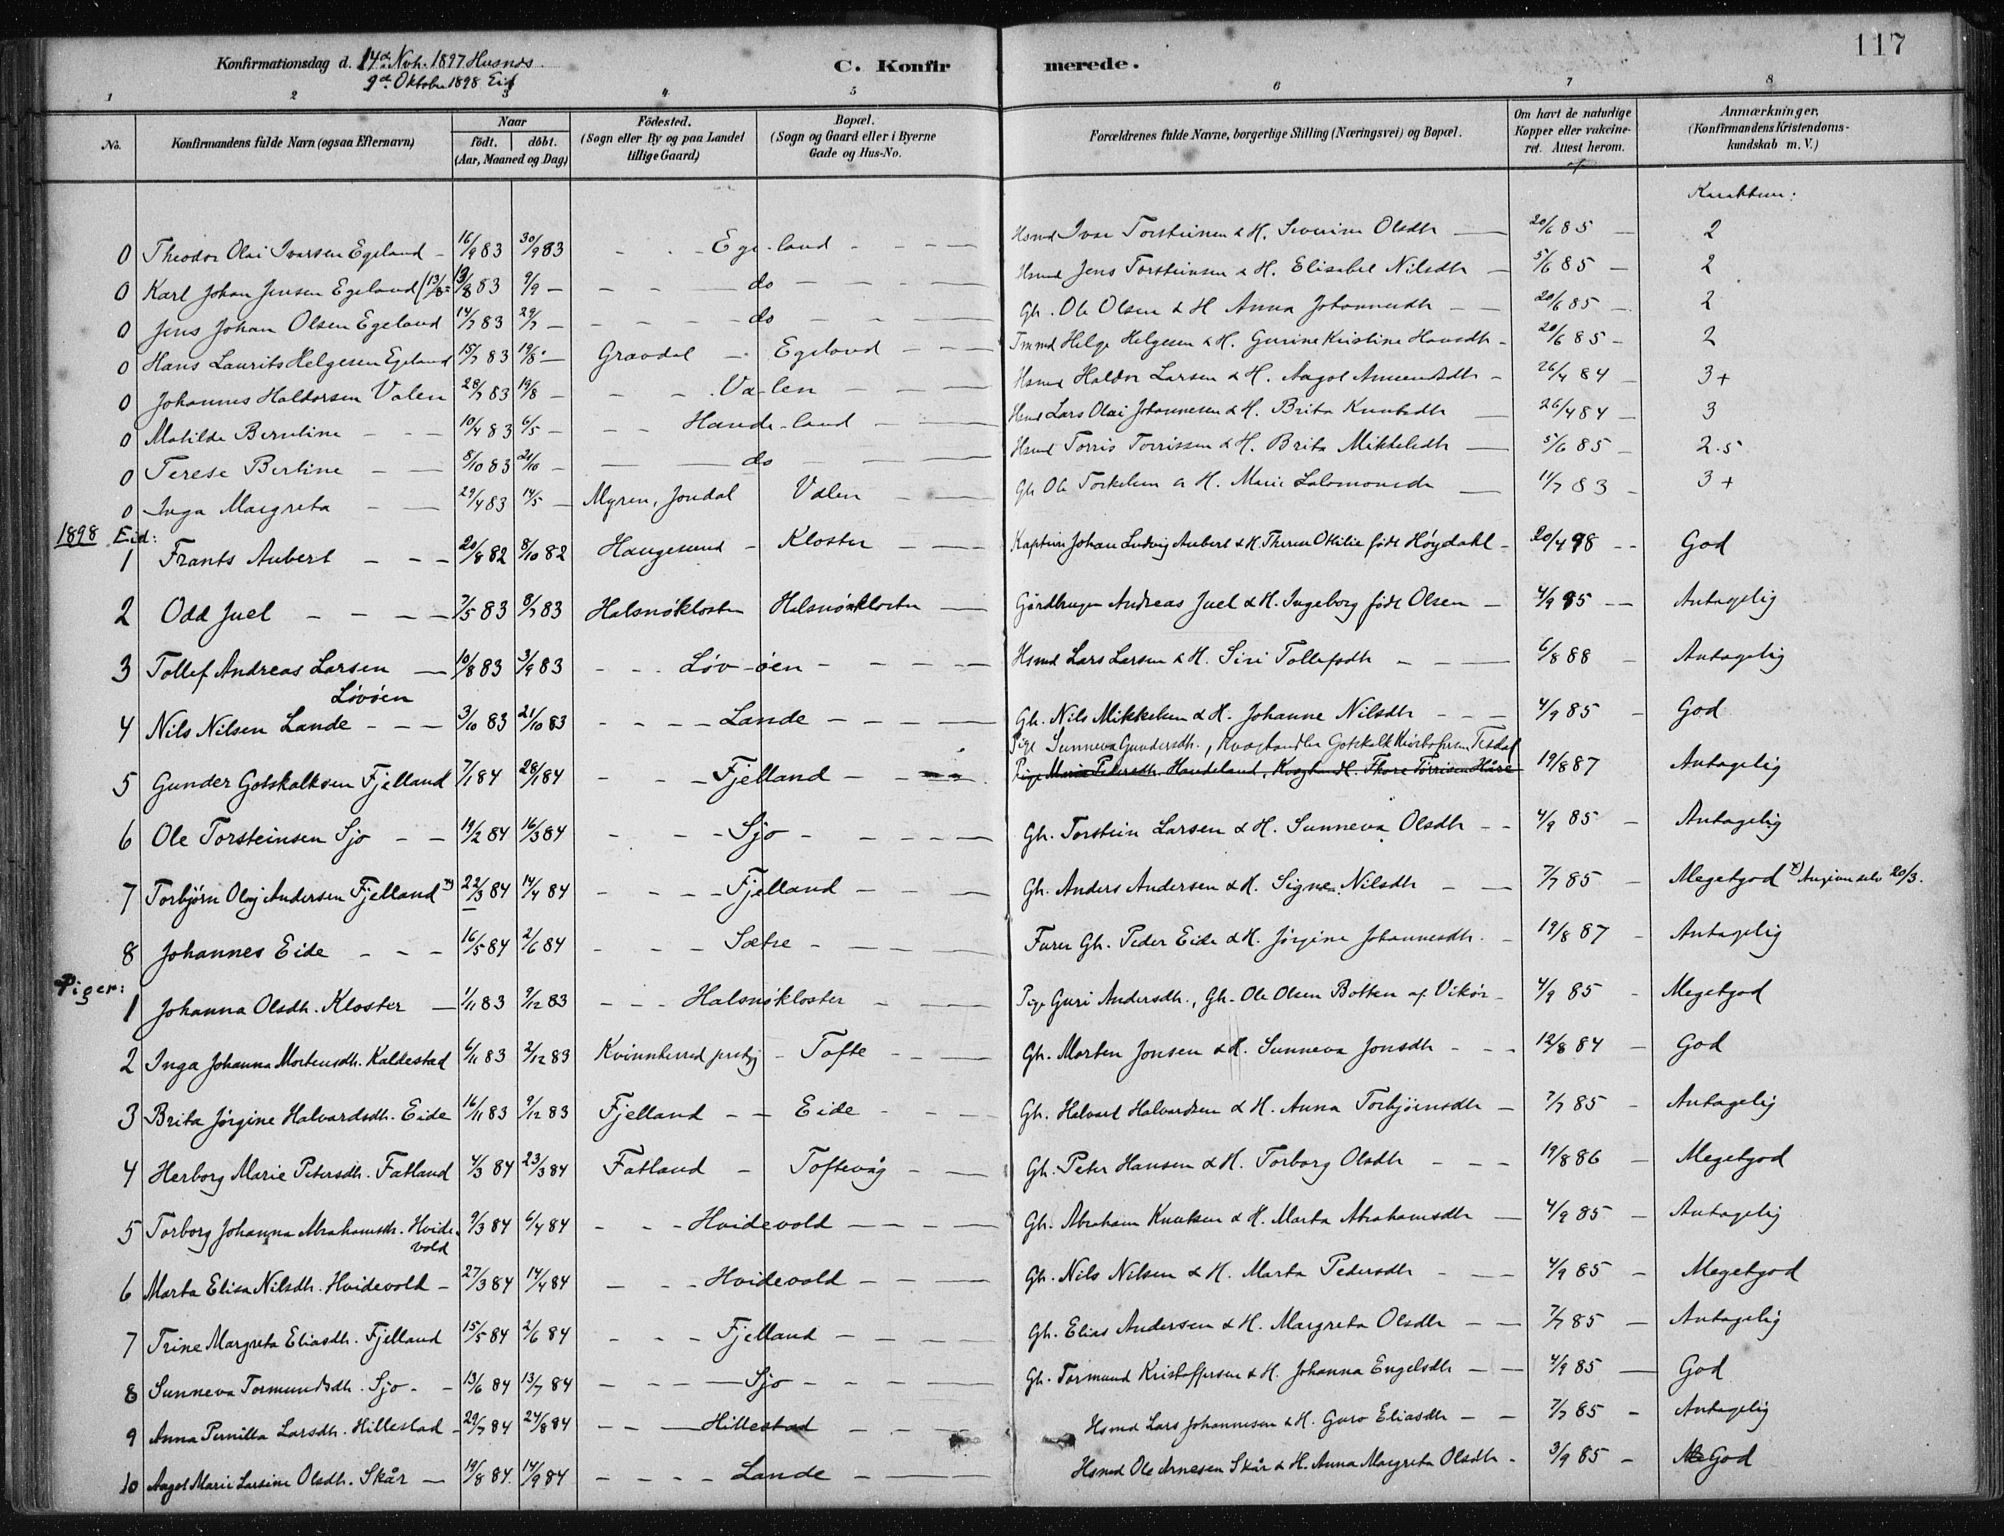 117
Konfirmationsdag d. 14de Nvb. 1897 Husnes.
9de Oktober 1898 Eid
C. Konfirmerede.
1 2 3 4 5 6 7 8
No. Konfirmandens fulde Navn (ogsaa Efternavn) Naar födt. döbt. (Aar, Maaned og Dag) Födested. (Sogn eller By og paa Landet tillige Gaard) Bopæl. (Sogn og Gaard eller i Byerne Gade og Hus-No. Forældrenes fulde Navne, borgerlige Stilling (Næringsvei) og Bopæl. Om havt de naturlige Kopper eller vakcineret. Attest herom. Anmærkninger. (Konfirmandens Kristendomskundskab m. V.)
Karakterer:
0 Theodor Olai Ivarsen Egeland - 16/9 83 30/9 83 - - - Egeland - - - Hsmd Ivar Torsteinsen & H. Severine Olsdtr — 20/6 85 — 2
0 Karl Johan Jensen Egeland (13/8 13/8 83 9/9 — - - - do - - - Hsmd Jens Torsteinsen & H. Elisabet Nilsdtr — 5/6 85 — 2
0 Jens Johan Olsen Egeland 14/7 83 29/7 — - - - do - - - Gb. Ole Olsen & H Anna Johannesdtr — 20/6 85 — 2
0 Hans Laurits Helgesen Egeland 15/7 83 19/8 — Gravdal — Egeland - - - Helge Helgesen & H. Gurine Kristine Hansdtr - 20/6 85 — 2
0 Johannes Haldorsen Valen 28/7 83 19/8 — - - Valen - - - Hsmd Haldor Larsen & H. Aagot Amundsdtr - 26/4 84 — 3+
0 Matilde Berntine - - - 10/4 83 6/5 — - - Handeland - - - Hsmd Lars Olai Johannesen & H. Brita Knutsdtr — 26/4 84 — 3
0 Terese Bertine — — 8/10 83 21/10 — — — do — — Hsmd Torris Torrissen & H. Brita Mikkelsdtr — 5/6 85 — 2.5
0 Inga Margreta - — 29/4 83 14/5 — Myren, Jondal Valen — — Gb. Ole Torkelsen & H. Marie Salomonsdr — 11/7 83 — 3+
1898 Eid:
1 Frants Aubert - - - 20/8 82 8/10 82 Haugesund - Kloster - - - Kaptein Johan Ludvig Aubert & H. Therese Otilie født Høydahl - 20/4 98 - - God
2 Odd Juel - - - 7/5 83 8/7 83 Halsnökloster Halsnökloster — Gårdbruger Andreas Juel & H. Ingeborg født Olsen — 4/9 95 — Antagelig
3 Tollef Andreas Larsen — 10/8 83 3/9 83 - - - Løvöen - - - Hsmd Lars Larsen & H. Siri Tollefsdtr - - — 6/8 88 — Antagelig
Løvöen
4 Nils Nilsen Lande - - - 3/10 83 21/10 83 - - - - Lande - - - - Gb. Nils Mikkelsen & H. Johanne Nilsdtr - - - 4/9 85 — God
Pige Sunneva Gundersdtr., Kvaghandler Gotskalk Kristofersen Tesdal
5 Gunder Gotskalksen Fjelland 7/1 84 28/1 84 - - - Fjelland - - - Pige Maria Pedersdtr. Handeland, Kvaghandl. Thore Torrisen Håre 19/8 87 Antagelig
6 Ole Torsteinsen Sjo - - 19/2 84 16/3 84 - - - Sjo - - - - Gb. Torstein Larsen & H. Sunneva Olsdtr - - 4/9 85 — Antagelig
7 Torbjørn Olaj Andersen Fjelland x) 22/3 84 14/4 84 - - - Fjelland - - - Gb. Anders Andersen & H. Signe Nilsdtr - — 7/7 85 — Megetgod x) Angiver selv 20/3.
8 Johannes Eide - - - 16/5 84 2/6 84 - - - Sætre - — — Furer Gb. Peder Eide & H. Jørgine Johannesdtr. - 19/8 87 — Antagelig
Piger:
1 Johanna Olsdtr. Kloster — 1/11 83 9/12 83 - - - Halsnökloster - - - Pige Guri Andersdtr., Gb. Ole Olsen Botten af Vikör - 4/9 85 — Megetgod
2 Inga Johanna Mortensdtr. Kaldestad 6/11 83 2/12 83 Kvinnherred prstgj - Tofte - - — Gb. Morten Jonsen & H. Sunneva Jonsdtr - - - 12/8 84 — God
3 Brita Jørgine Halvardsdtr. Eide 16/11 83 9/12 83 Fjelland - - Eide - - - Gb. Halvart Halvardsen & H. Anna Torbjörnsdtr — 7/7 85 — Antagelig
4 Herborg Marie Petersdtr. Fatland 4/3 84 23/3 84 Fatland - Toftevåg - — Gb. Peter Hansen & H. Torborg Olsdtr - - - 19/8 86 — Megetgod
5 Torborg Johanna Abrahamsdtr. Hvidevold 9/3 84 6/4 84 - - - Hvidevold — — - — Gb. Abraham Knutsen & H. Marta Abrahamsdtr — 4/9 85 — Antagelig
6 Marta Elisa Nilsdtr. Hvidevold - 27/3 84 14/4 84 - - - Hvidevold - - - Gb. Nils Nilsen & H. Marta Pedersdtr - - 4/9 85 — Megetgod
7 Trine Margreta Eliasdtr. Fjelland 15/5 84 2/6 84 - - - Fjelland - - - Gb. Elias Andersen & H. Margreta Olsdtr — - 7/7 85 — Antagelig
8 Sunneva Tormundsdtr. Sjo - - 13/6 84 13/7 84 - - - Sjo - - - - Gb. Tormund Kristoffersen & H. Johanna Engelsdtr - — 4/9 85 — God
9 Anna Pernilla Larsdtr. Hillestad - 29/7 84 24/8 84 - - — Hillestad - - - Hsmd Lars Johannesen & H. Guro Eliasdtr - - 7/7 85 — Antagelig
10 Aagot Marie Larsine Olsdtr. Skår — 19/8 84. 14/9 84 - - - - Lande - - - Hsmd Ole Arnesen Skår & H. Anna Margreta Olsdtr - 3/9 85 — God